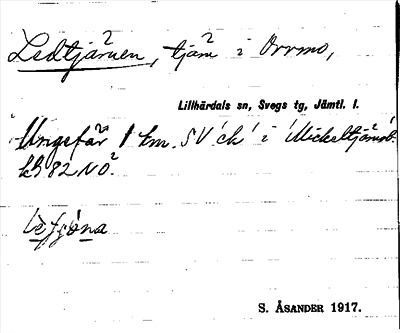 Ledtjärnen, tjärn i Orrmo,
Lillhärdals sn, Svegs tg, Jämtl. l.
Ungefär 1 km. SV "ck" i "Mickeltjärnsb."
kb 82 NO.
S. ÅSANDER 1917.